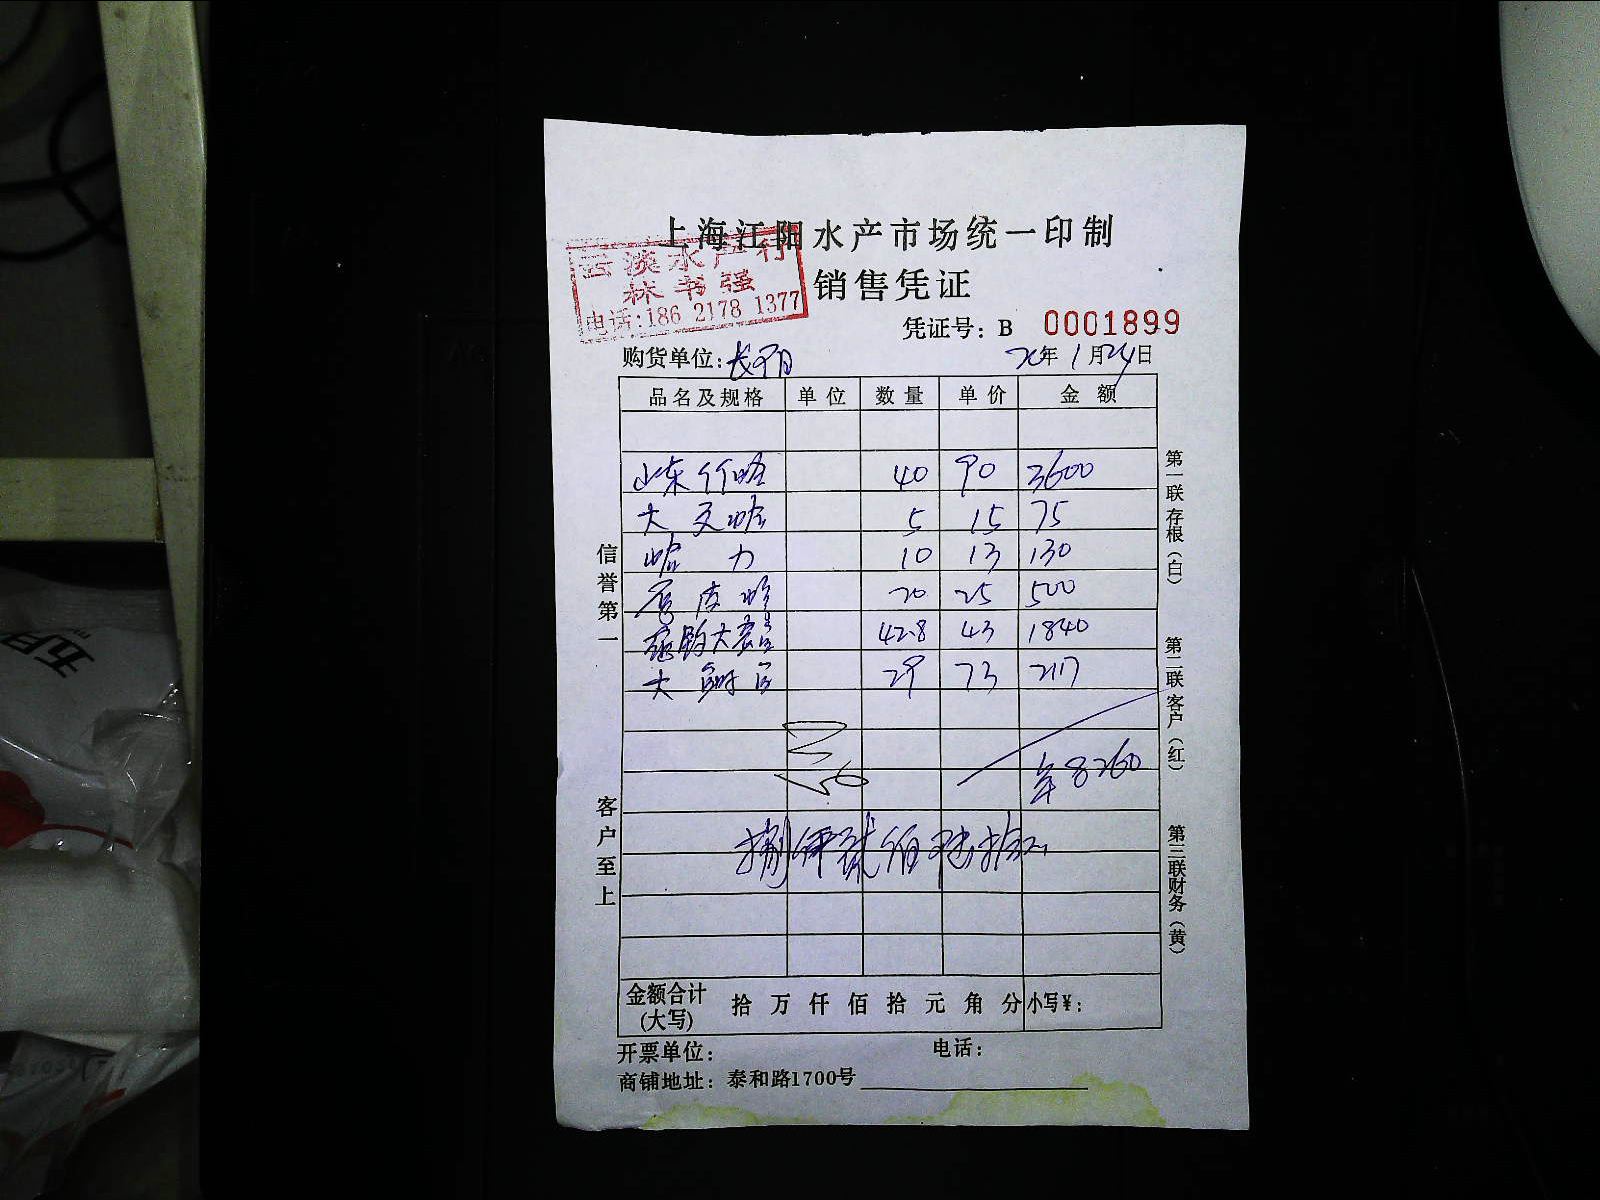 上海江阳水产市场统一印制
云淡水产行
林书强
电话:186 2178 1377
销售凭证
凭证号: B 0001899
购货单位: 长阳 20年1月24日
品名及规格 单位 数量 单价 金额
山东竹蛤 40 90 3600
大文蛤 5 15 75
蛤力 10 13 130
皮虾 20 25 500
大 42.8 43 1840
大 29 73 2117
8260
捌仟贰佰陆拾元
金额合计(大写) 拾 万 仟 佰 拾 元 角 分 小写¥:
开票单位: 电话:
商铺地址: 泰和路1700号
信誉第一
客户至上
第一联存根(白)
第二联客户(红)
第三联财务(黄)
五月